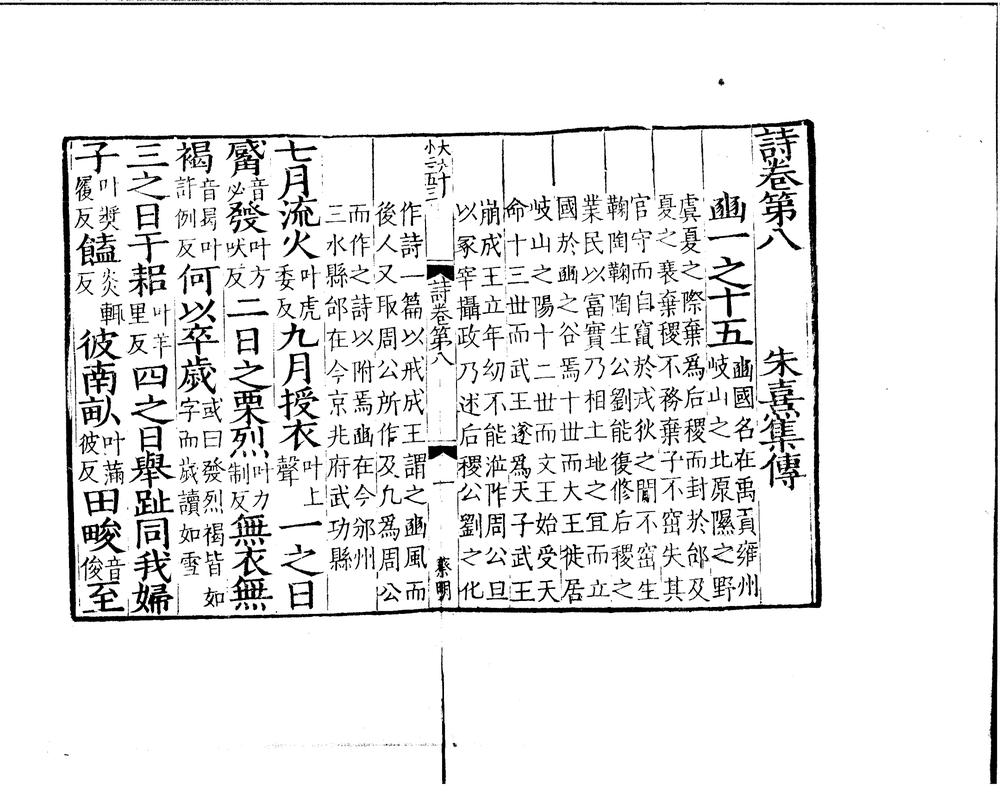 詩卷第八　朱熹集傳
豳一之十五豳國名在禹貢雍州岐山之北原隰之野
虞夏之際棄爲后稷而封於邰及
夏之衰棄稷不務棄子不窋失其
官守而自竄於戎狄之閒不窋生
鞠陶鞠陶生公劉能復修后稷之
業民以富實乃相土地之宜而立
國於豳之谷焉十世而大王徙居
岐山之陽十二世而文王始受天
命十三世而武王遂爲天子武王
崩成王立年幼不能涖阼周公旦
以冢宰攝政乃述后稷公劉之化
大六十
詩卷第八　一　蔡明
作詩一篇以戒成王謂之豳風而
後人又取周公所作及凡爲周公
而作之詩以附焉豳在今邠州
三水縣邰在今京兆府武功縣
七月流火叶虎委反九月授衣叶上聲一之日
觱音必發叶方吠反二日之栗烈叶力制反無衣無
褐音曷叶許例反何以卒歲或曰發烈褐皆如字而歲讀如雪
三之日于耜叶羊里反四之日舉趾同我婦
子叶奬履反饁炎輒反彼南畝叶滿彼反田畯音俊至